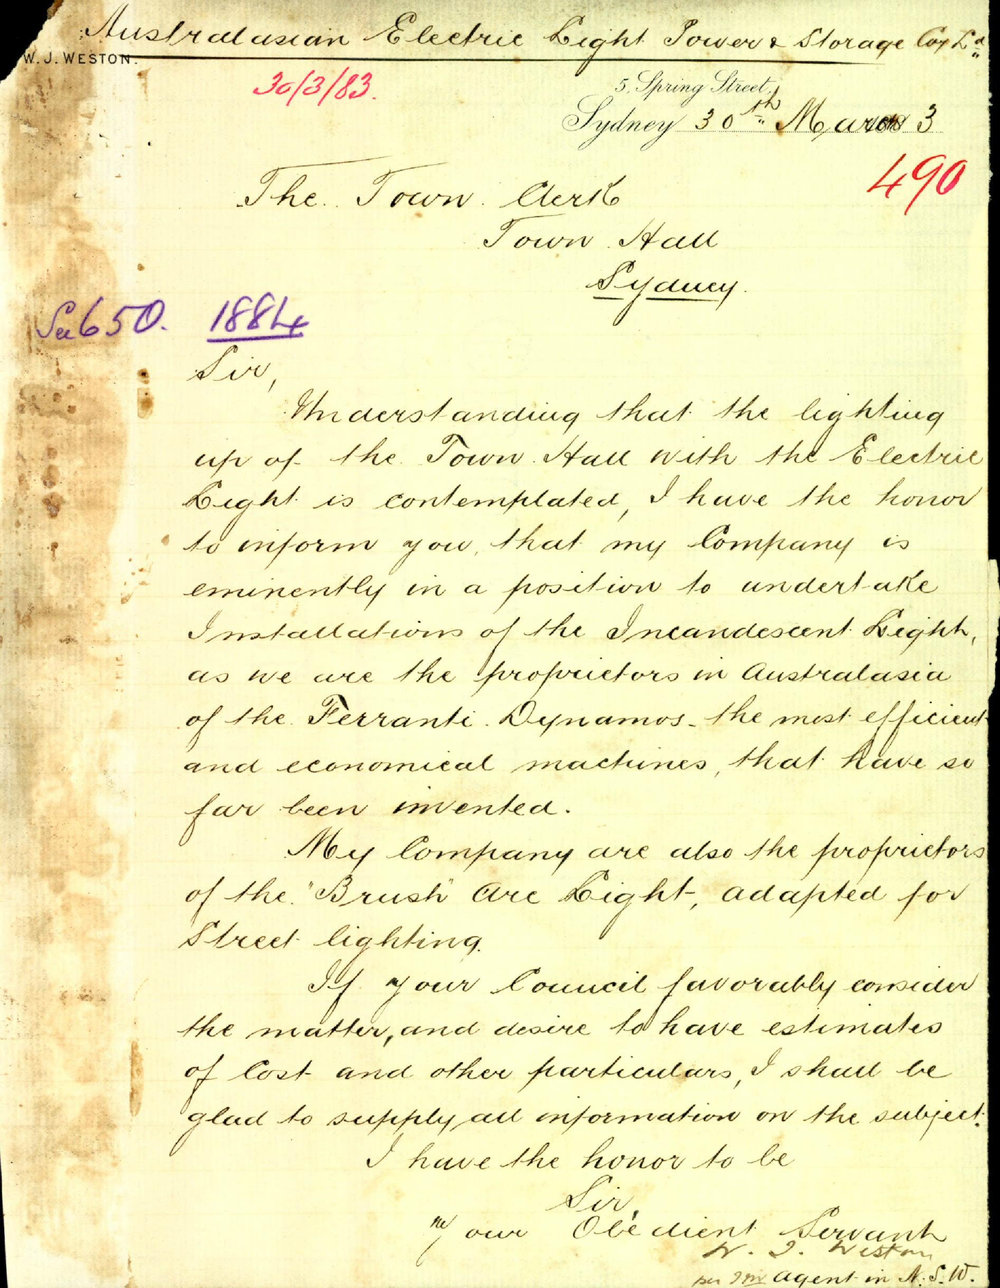 Australasian Electric Light Power & Storage Coy Ld
W. J. WESTON.
30/3/83.
5, Spring Street,
Sydney 30th March 1883
490
The Town Clerk
Town Hall
Sydney.
See 650. 1884
Sir,
Understanding that the lighting
up of the Town Hall with the Electric
Light is contemplated, I have the honor
to inform you, that my Company is
eminently in a position to undertake
Installations of the Incandescent Light,
as we are the proprietors in Australasia
of the Ferranti Dynamos - the most efficient
and economical machines, that have so
far been invented.
My Company are also the proprietors
of the "Brush" Arc Light, adapted for
Street lighting.
If your Council favorably consider
the matter, and desire to have estimates
of Cost and other particulars, I shall be
glad to supply all information on the subject.
I have the honor to be
Sir,
Your Obedient Servant
W. J. Weston
Agent in N.S.W.